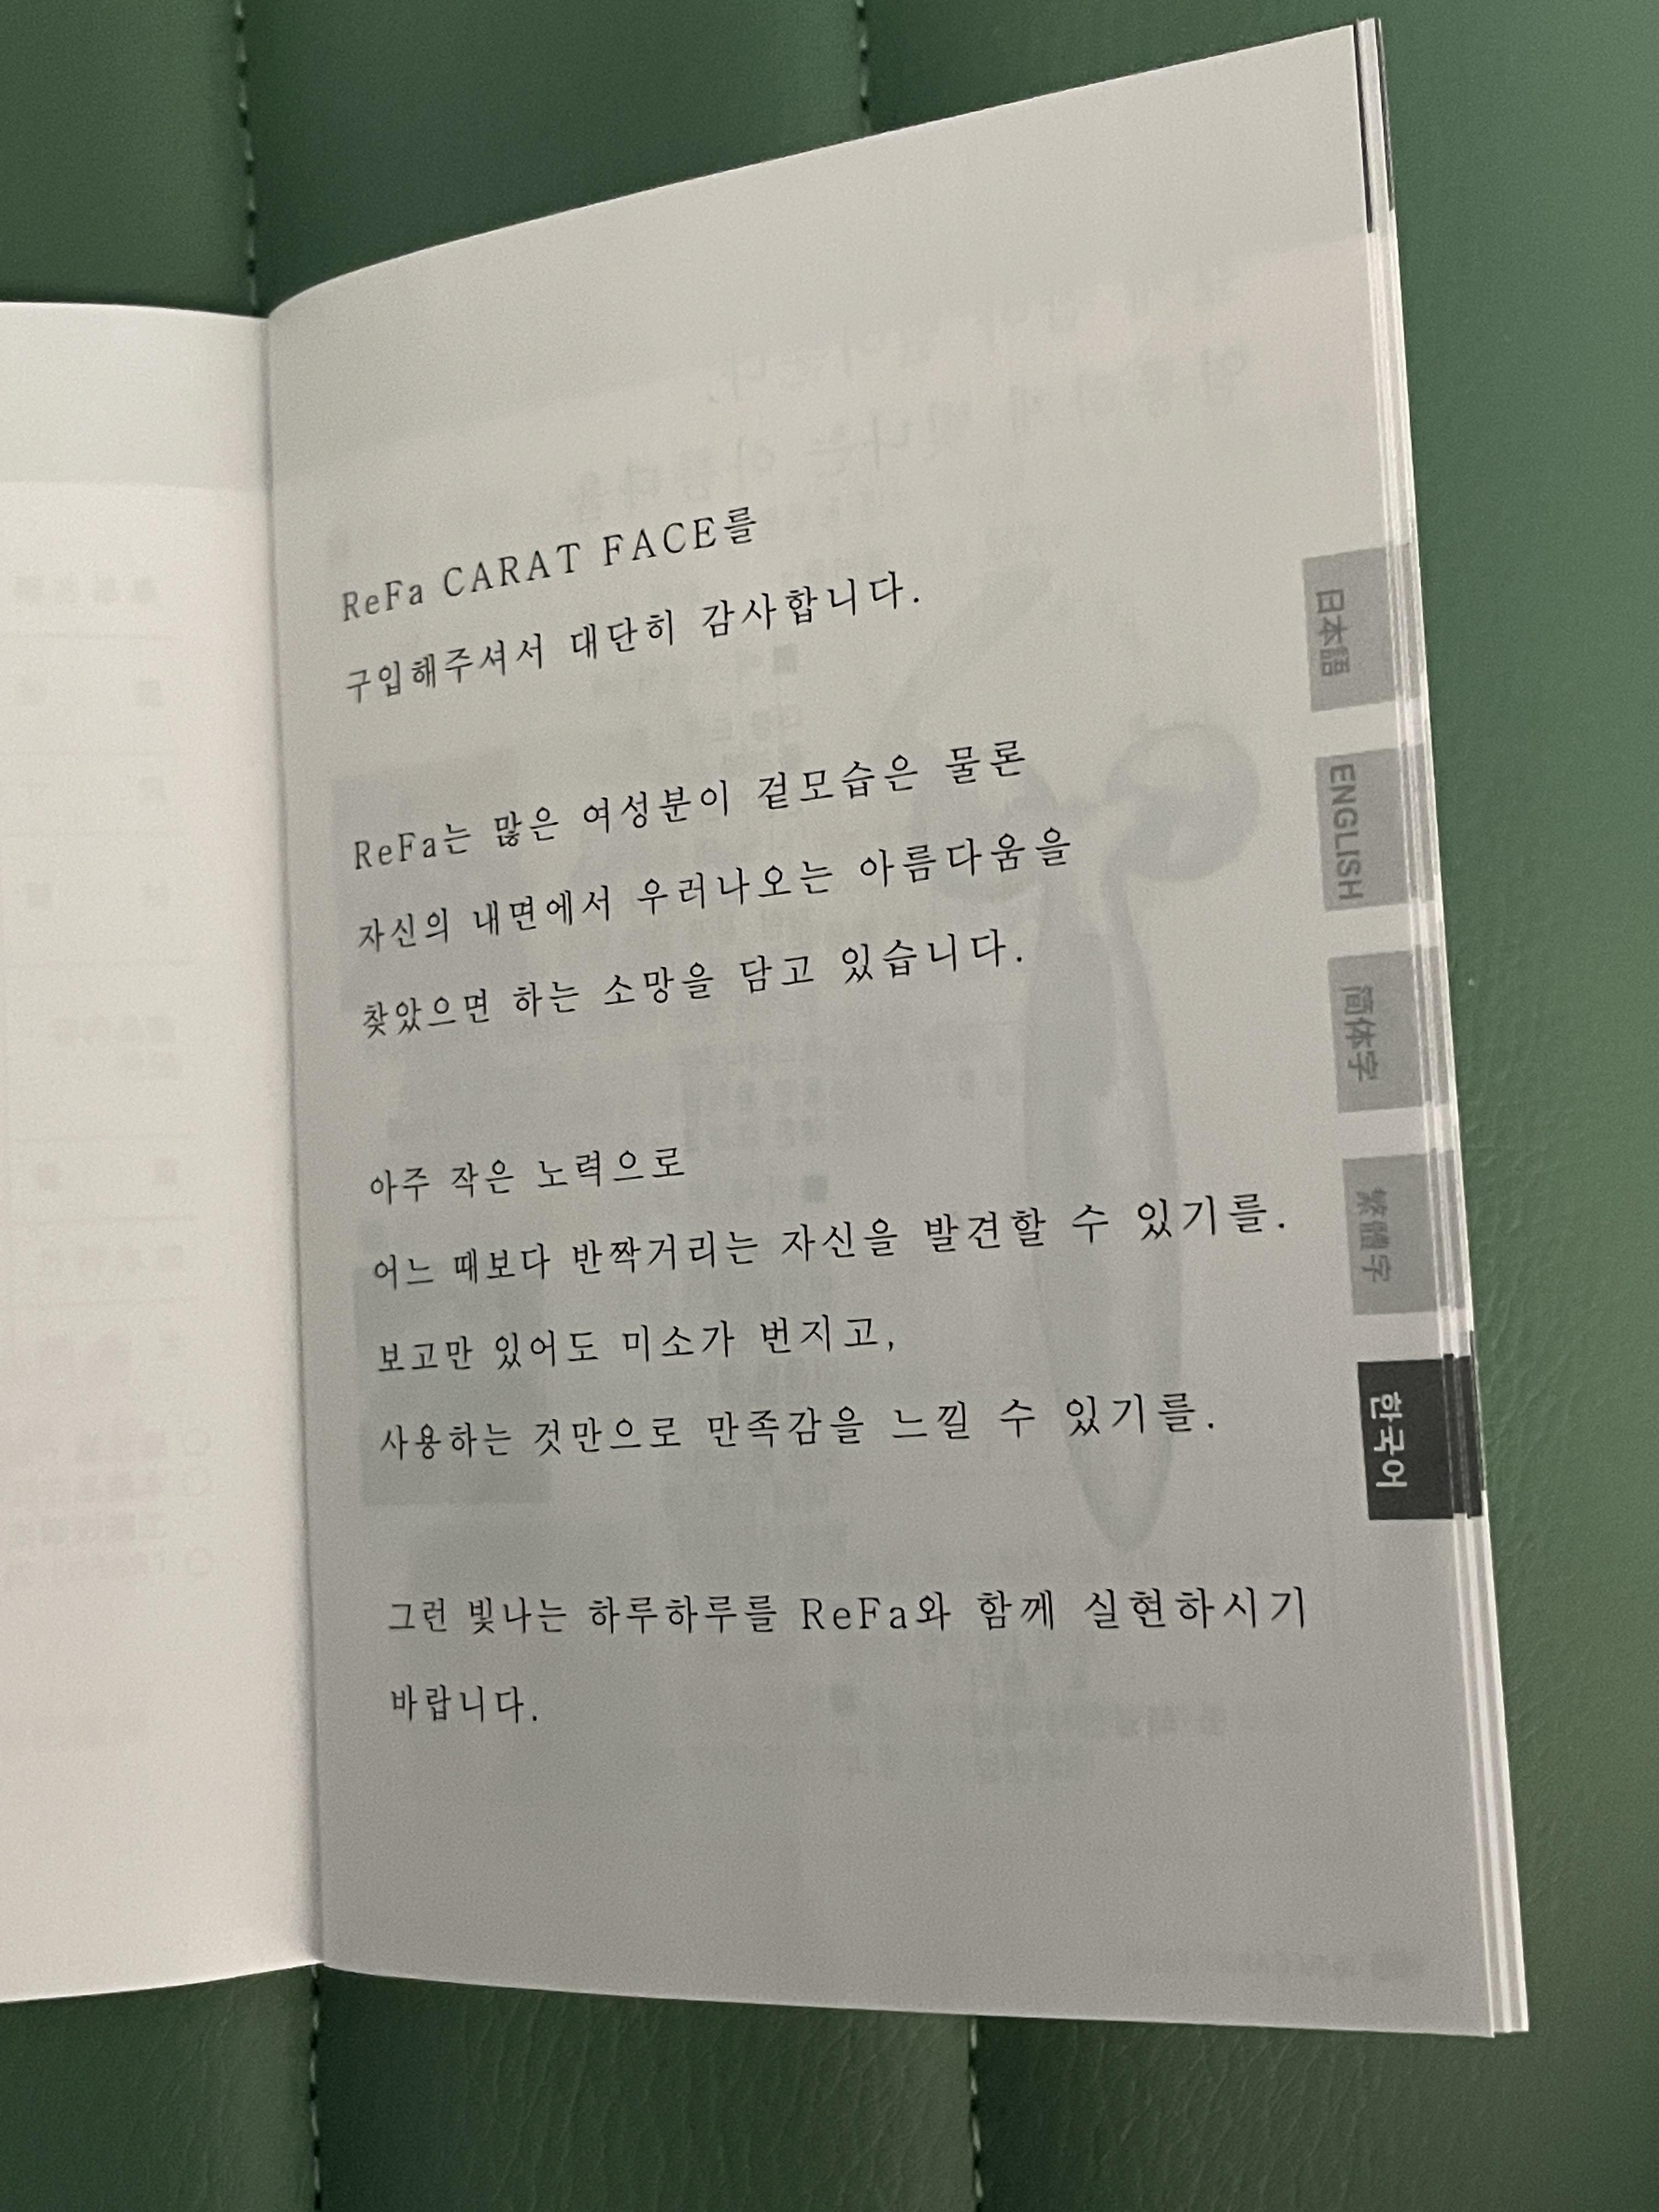 ReFa CARAT FACE를
구입해주셔서 대단히 감사합니다.
ReFa는 많은 여성분이 겉모습은 물론
자신의 내면에서 우러나오는 아름다움을
찾았으면 하는 소망을 담고 있습니다.
아주 작은 노력으로
어느 때보다 반짝거리는 자신을 발견할 수 있기를.
보고만 있어도 미소가 번지고,
사용하는 것만으로 만족감을 느낄 수 있기를.
그런 빛나는 하루하루를 ReFa와 함께 실현하시기
바랍니다.
日本語
ENGLISH
简体字
繁體字
한국어